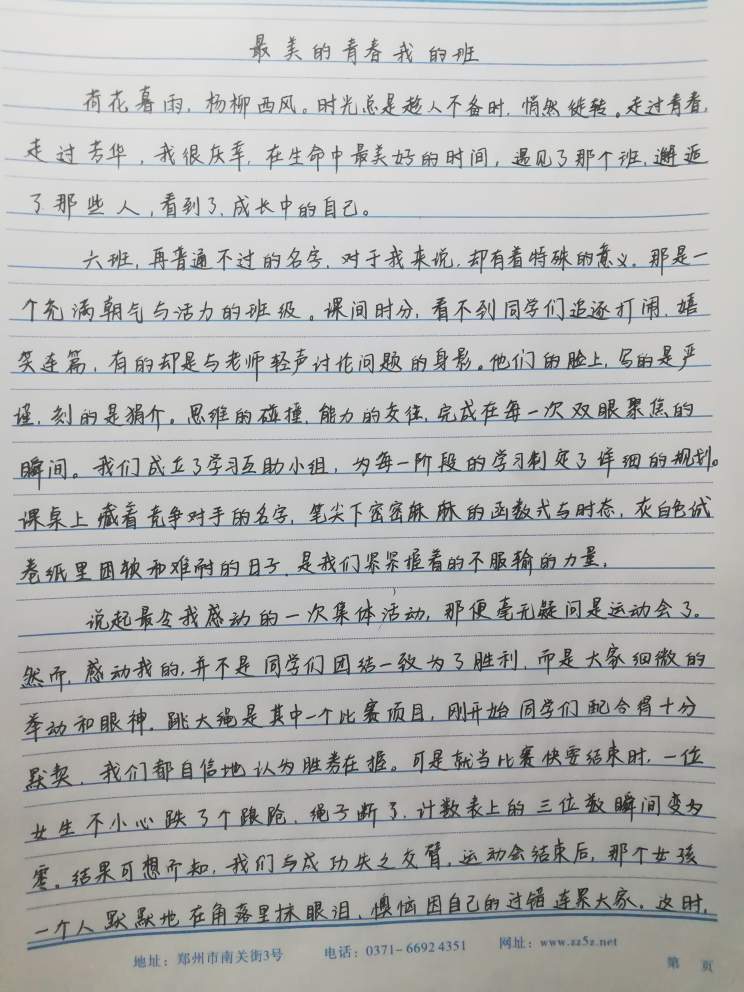 最美的青春我的班
荷花暮雨，杨柳西风。时光总是趁人不备时，悄然徙转。走过青春，
走过芳华，我很庆幸，在生命中最美好的时间，遇见了那个班，邂逅
了那些人，看到了，成长中的自己。
六班，再普通不过的名字，对于我来说，却有着特殊的意义，那是一
个充满朝气与活力的班级。课间时分，看不到同学们追逐打闹，嬉
笑连篇，有的却是与老师轻声讨论问题的身影。他们的脸上，写的是严
谨，刻的是狷介。思维的碰撞，能力的交往，完成在每一次双眼聚焦的
瞬间。我们成立了学习互助小组，为每一阶段的学习制定了详细的规划。
课桌上藏着竞争对手的名字，笔尖下密密麻麻的函数式与时态，灰白色试
卷纸里困顿和难耐的日子，是我们紧紧握着的不服输的力量，
说起最令我感动的一次集体活动，那便毫无疑问是运动会了。
然而，感动我的，并不是同学们团结一致为了胜利，而是大家细微的
举动和眼神，跳大绳是其中一个比赛项目，刚开始同学们配合得十分
默契，我们都自信地认为胜券在握。可是就当比赛快要结束时，一位
女生不小心跌了个踉跄，绳子断了，计数表上的三位数瞬间变为
零。结果可想而知，我们与成功失之交臂，运动会结束后，那个女孩
一个人默默地在角落里抹眼泪，懊恼因自己的过错连累大家。这时，
地址：郑州市南关街3号 电话：0371-66924351 网址：www.zz5z.net
第 页